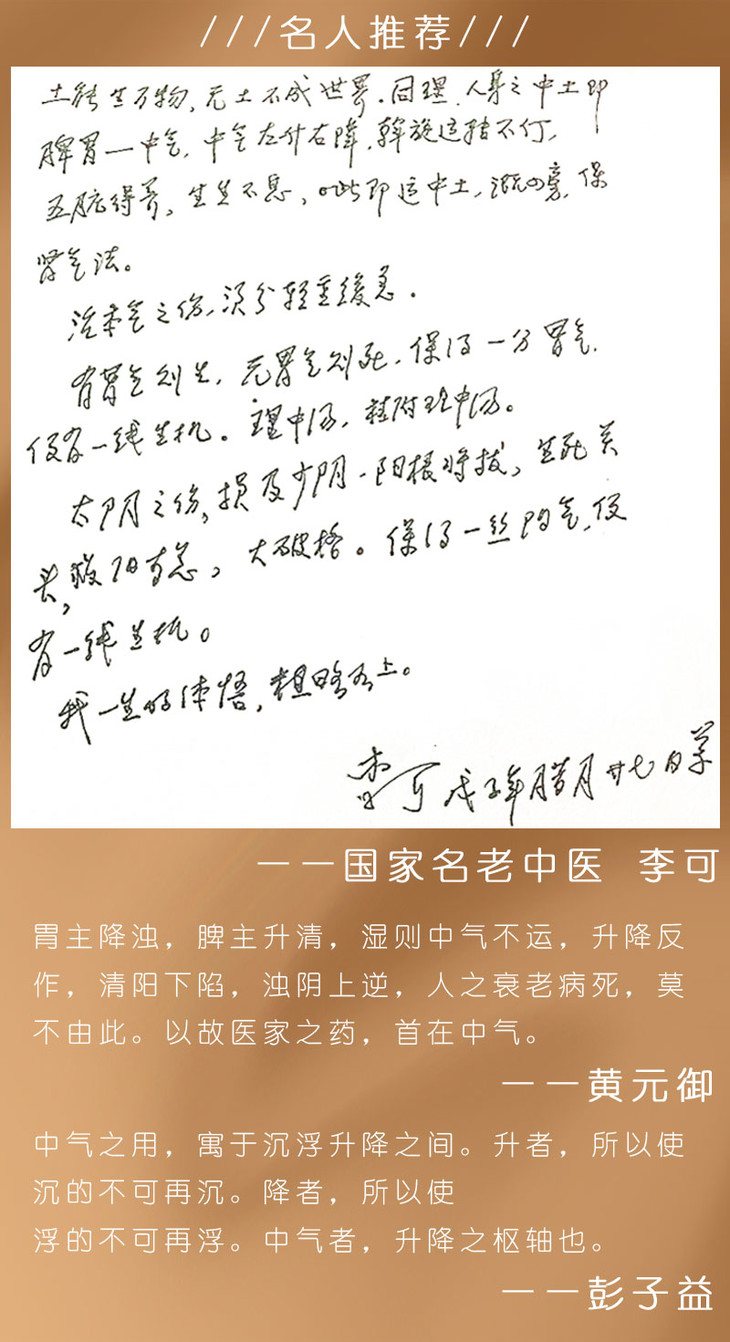 ///名人推荐///
土能生万物，无土不成世界。同理，人身之中土即
脾胃—中气，中气左升右降，斡旋运转不停，
五脏得养，生生不息，此即运中土，溉四旁，保
肾气法。
治本气之伤，须分轻重缓急。
有胃气则生，无胃气则死，保得一分胃气，
便有一线生机。理中汤，桂附理中汤。
太阴之伤，损及少阴，阳根将拔，生死关
头，救阳为急，大破格。保得一丝阳气，便
有一线生机。
我一生的体悟，粗略如上。
李可 戊子年腊月廿七日草
——国家名老中医 李可
胃主降浊，脾主升清，湿则中气不运，升降反
作，清阳下陷，浊阴上逆，人之衰老病死，莫
不由此。以故医家之药，首在中气。
——黄元御
中气之用，寓于沉浮升降之间。升者，所以使
沉的不可再沉。降者，所以使
浮的不可再浮。中气者，升降之枢轴也。
——彭子益